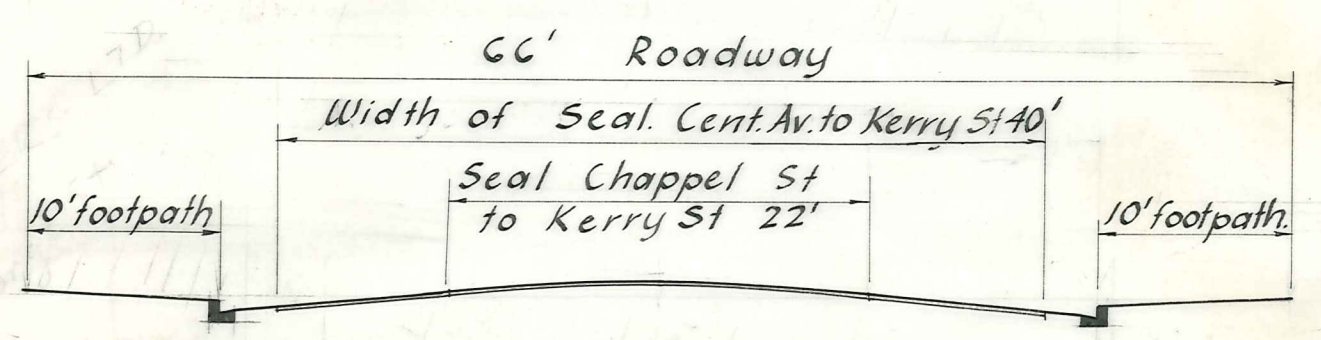 66' Roadway
Width of Seal. Cent. Av. to Kerry St 40'
Seal Chappel St
to Kerry St 22'
10' footpath
10' footpath.